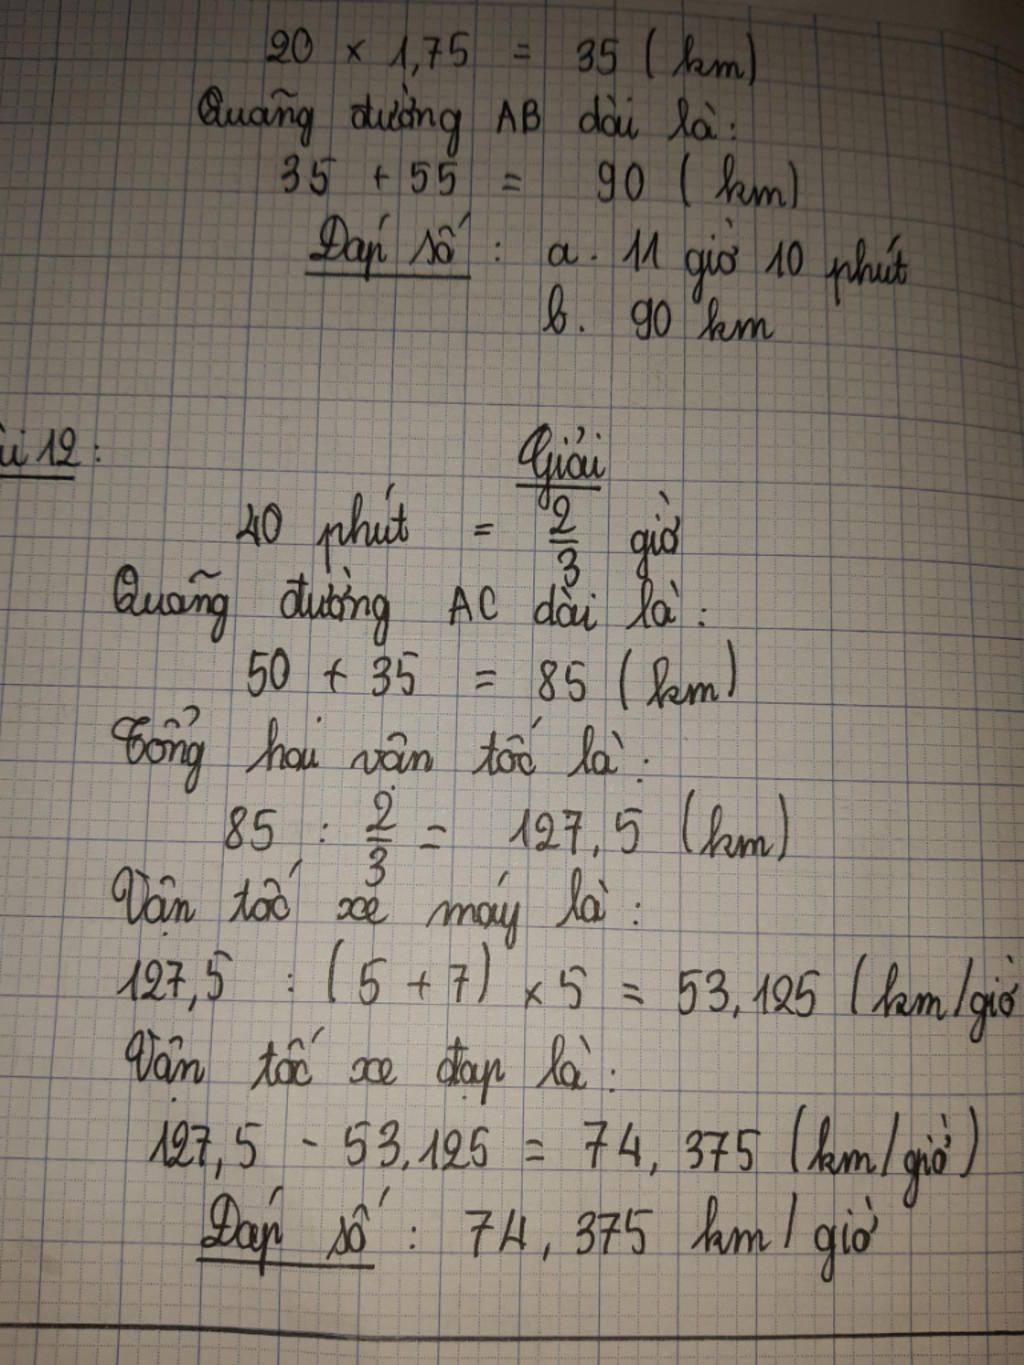 20 × 1,75 = 35 (km)
Quãng đường AB dài là:
35 + 55 = 90 (km)
Đáp số: a. 11 giờ 10 phút
b. 90 km
12:
Giải
40 phút = 2/3 giờ
Quãng đường AC dài là:
50 + 35 = 85 (km)
Tổng hai vận tốc là:
85 : 2/3 = 127,5 (km)
Vận tốc xe máy là:
127,5 : (5 + 7) × 5 = 53,125 (km/giờ
Vận tốc xe đạp là:
127,5 - 53,125 = 74,375 (km/giờ)
Đáp số: 74,375 km/giờ